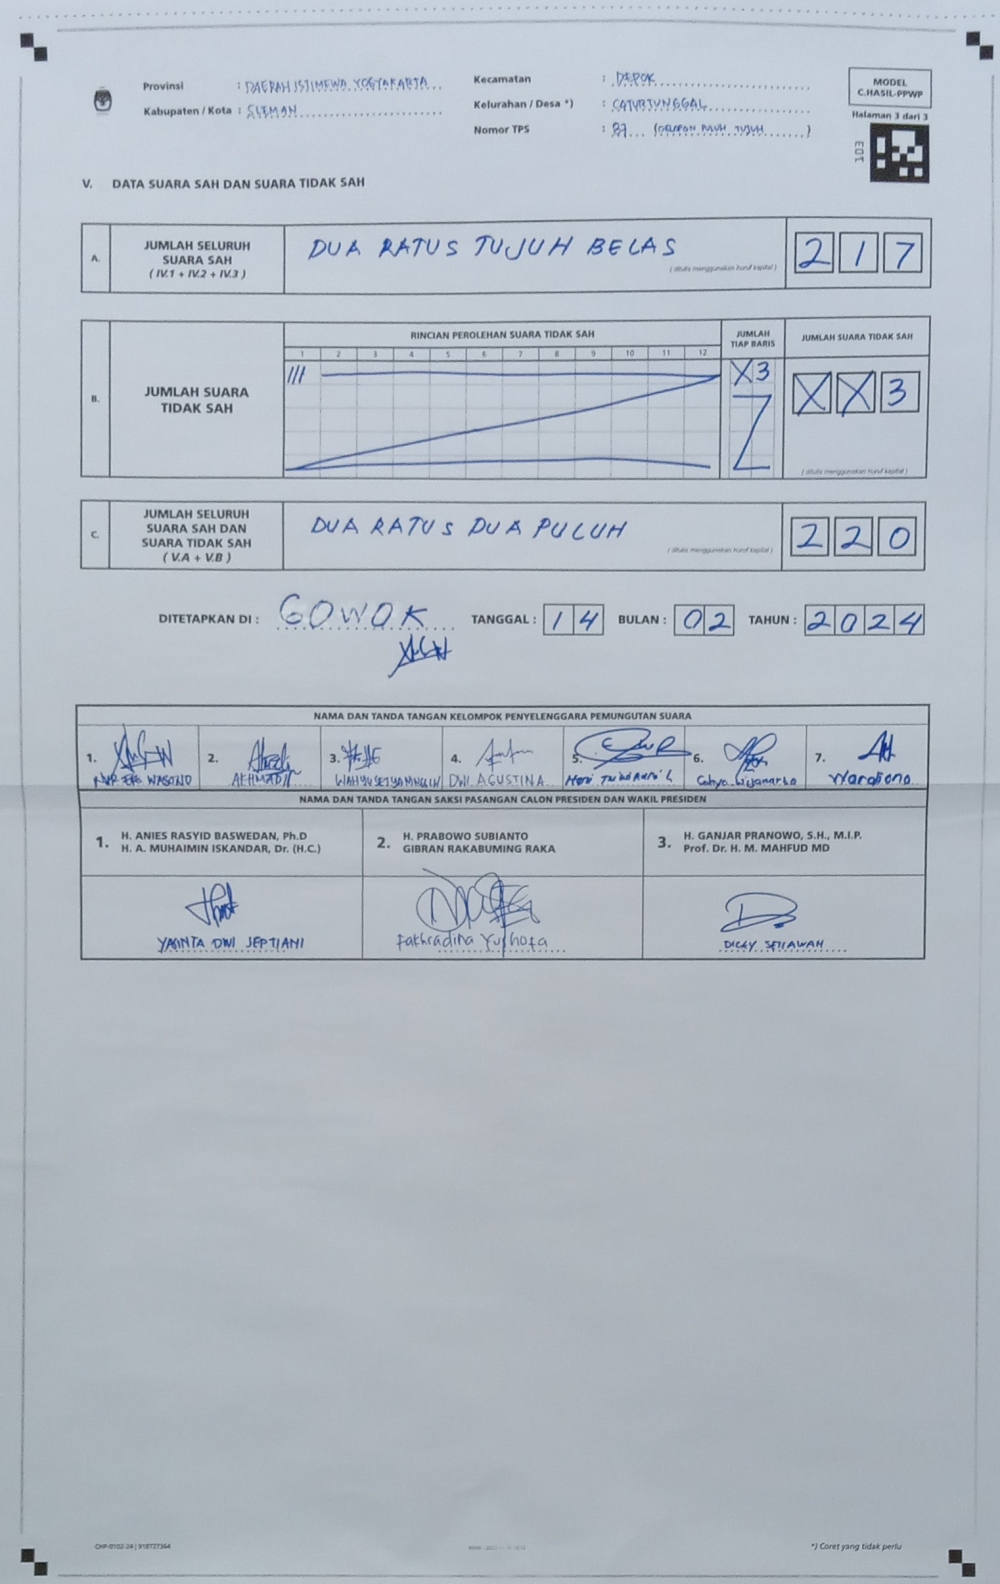 Provinsi : DAERAH ISTIMEWA YOGYAKARTA
Kabupaten / Kota : SLEMAN
Kecamatan : DEPOK
Kelurahan / Desa *) : CATURTUNGGAL
Nomor TPS : 87 (DELAPAN PULUH TUJUH)
MODEL
C.HASIL-PPWP
Halaman 3 dari 3
103
V. DATA SUARA SAH DAN SUARA TIDAK SAH
A. JUMLAH SELURUH SUARA SAH ( IV.1 + IV.2 + IV.3 )
DUA RATUS TUJUH BELAS
( ditulis menggunakan huruf kapital )
2 1 7
B. JUMLAH SUARA TIDAK SAH
RINCIAN PEROLEHAN SUARA TIDAK SAH
1 2 3 4 5 6 7 8 9 10 11 12
JUMLAH TIAP BARIS
JUMLAH SUARA TIDAK SAH
///
X3
X X 3
( ditulis menggunakan huruf kapital )
C. JUMLAH SELURUH SUARA SAH DAN SUARA TIDAK SAH ( V.A + V.B )
DUA RATUS DUA PULUH
( ditulis menggunakan huruf kapital )
2 2 0
DITETAPKAN DI : GOWOK TANGGAL : 14 BULAN : 02 TAHUN : 2024
NAMA DAN TANDA TANGAN KELOMPOK PENYELENGGARA PEMUNGUTAN SUARA
1. WASONO
2. AKHMADI
3.
4. DWI AGUSTINA
5. Heni
6. Cahyo
7. Wardiono
NAMA DAN TANDA TANGAN SAKSI PASANGAN CALON PRESIDEN DAN WAKIL PRESIDEN
1. H. ANIES RASYID BASWEDAN, Ph.D
H. A. MUHAIMIN ISKANDAR, Dr. (H.C.)
2. H. PRABOWO SUBIANTO
GIBRAN RAKABUMING RAKA
3. H. GANJAR PRANOWO, S.H., M.I.P.
Prof. Dr. H. M. MAHFUD MD
YASINTA DWI SEPTIANI
Fakhradina
DICKY SETIAWAN
CHP-0102-24 | 918727364
*) Coret yang tidak perlu